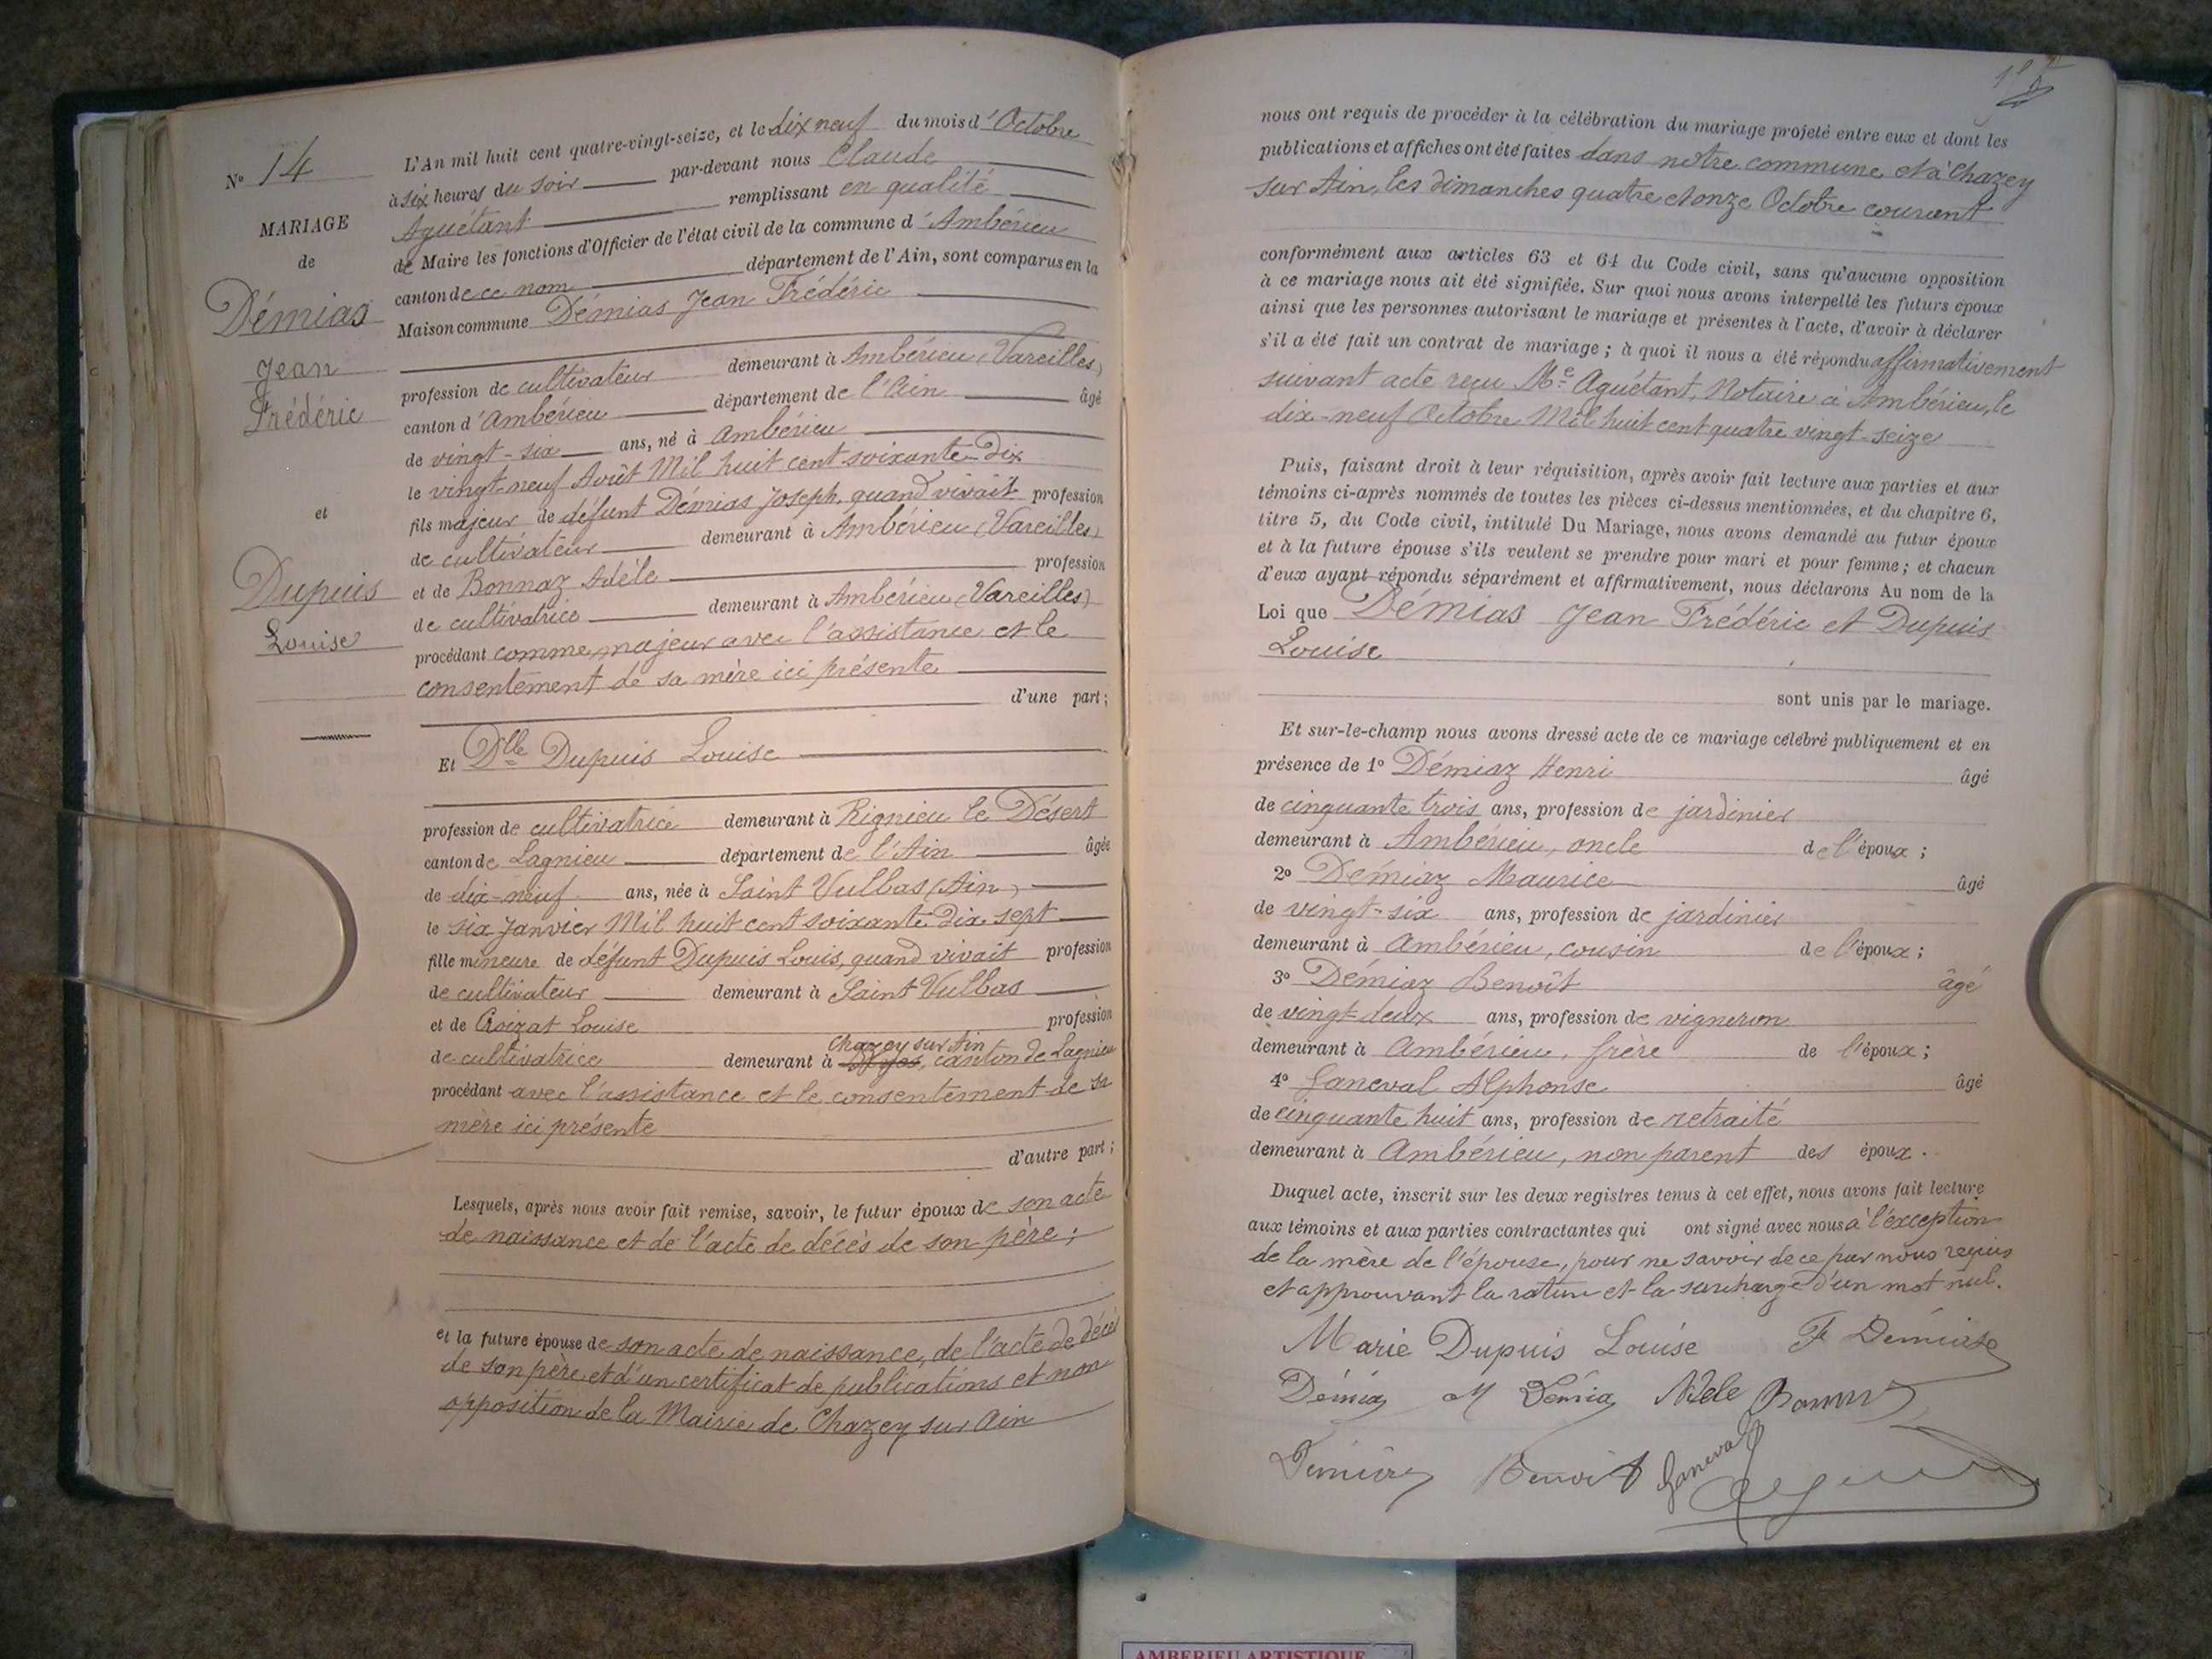 N° 14
MARIAGE
de
Démias
Jean
Frédéric
et
Dupuis
Louise
L'An mil huit cent quatre-vingt-seize, et le dix neuf du mois d'Octobre
à six heures du soir par-devant nous Claude
Aguétant remplissant en qualité
de Maire les fonctions d'Officier de l'état civil de la commune d'Ambérieu
canton de ce nom département de l'Ain, sont comparus en la
Maison commune Démias Jean Frédéric
profession de cultivateur demeurant à Ambérieu (Vareilles)
canton d'Ambérieu département de l'Ain âgé
de vingt-six ans, né à Ambérieu
le vingt-neuf Août Mil huit cent soixante-dix
fils majeur de défunt Démias Joseph, quand vivait profession
de cultivateur demeurant à Ambérieu (Vareilles)
et de Bonnaz Adèle profession
de cultivatrice demeurant à Ambérieu (Vareilles)
procédant comme majeur avec l'assistance et le
consentement de sa mère ici présente
d'une part;
Et Dlle Dupuis Louise
profession de cultivatrice demeurant à Rignieu le Désert
canton de Lagnieu département de l'Ain âgée
de dix-neuf ans, née à Saint Vulbas (Ain)
le six Janvier Mil huit cent soixante dix sept
fille mineure de défunt Dupuis Louis, quand vivait profession
de cultivateur demeurant à Saint Vulbas
et de Croizat Louise profession
Chazey sur Ain
de cultivatrice demeurant à canton de Lagnieu
procédant avec l'assistance et le consentement de sa
mère ici présente
d'autre part;
Lesquels, après nous avoir fait remise, savoir, le futur époux de son acte
de naissance et de l'acte de décès de son père;
et la future épouse de son acte de naissance, de l'acte de décès
de son père et d'un certificat de publications et non
opposition de la Mairie de Chazey sur Ain
nous ont requis de procéder à la célébration du mariage projeté entre eux et dont les
publications et affiches ont été faites dans notre commune et à Chazey
sur Ain, les dimanches quatre et onze Octobre courant
conformément aux articles 63 et 64 du Code civil, sans qu'aucune opposition
à ce mariage nous ait été signifiée. Sur quoi nous avons interpellé les futurs époux
ainsi que les personnes autorisant le mariage et présentes à l'acte, d'avoir à déclarer
s'il a été fait un contrat de mariage; à quoi il nous a été répondu affirmativement
suivant acte reçu Me Aguétant, Notaire à Ambérieu, le
dix-neuf Octobre Mil huit cent quatre vingt-seize
Puis, faisant droit à leur réquisition, après avoir fait lecture aux parties et aux
témoins ci-après nommés de toutes les pièces ci-dessus mentionnées, et du chapitre 6,
titre 5, du Code civil, intitulé Du Mariage, nous avons demandé au futur époux
et à la future épouse s'ils veulent se prendre pour mari et pour femme; et chacun
d'eux ayant répondu séparément et affirmativement, nous déclarons Au nom de la
Loi que Démias Jean Frédéric et Dupuis
Louise
sont unis par le mariage.
Et sur-le-champ nous avons dressé acte de ce mariage célébré publiquement et en
présence de 1° Démiaz Henri âgé
de cinquante trois ans, profession de jardinier
demeurant à Ambérieu, oncle de l'époux;
2° Démiaz Maurice âgé
de vingt-six ans, profession de jardinier
demeurant à Ambérieu, cousin de l'époux;
3° Démiaz Benoît âgé
de vingt-deux ans, profession de vigneron
demeurant à Ambérieu, frère de l'époux;
4° Ganeval Alphonse âgé
de cinquante huit ans, profession de retraité
demeurant à Ambérieu, non parent des époux.
Duquel acte, inscrit sur les deux registres tenus à cet effet, nous avons fait lecture
aux témoins et aux parties contractantes qui ont signé avec nous à l'exception
de la mère de l'épouse, pour ne savoir de ce par nous requis
et approuvant la rature et la surcharge d'un mot nul.
Marie Dupuis Louise
Démiaz M Démiaz Adele
Benoit Ganeval
AMBERIEU ARTISTIQUE